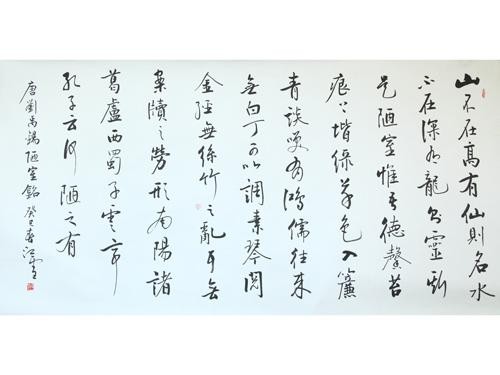 山不在高有仙則名水
不在深有龍則靈斯
是陋室惟吾德馨苔
痕上堦綠草色入簾
青談笑有鴻儒往來
無白丁可以調素琴閱
金經無絲竹之亂耳無
案牘之勞形南陽諸
葛廬西蜀子雲亭
孔子云何陋之有
唐劉禹錫陋室銘癸巳春